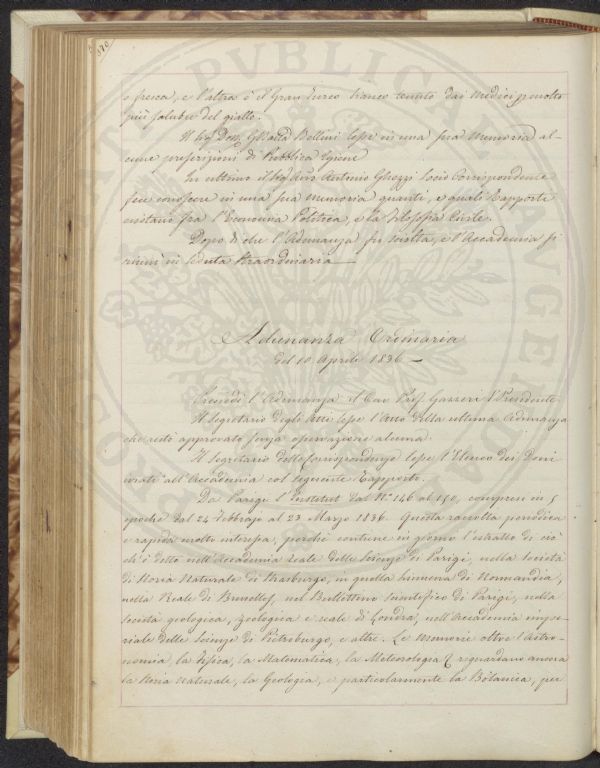 e fresca, e l'altra è il Gran Turco bianco tenuto dai Medici p molto
più salubre del giallo.
Il Sig. Dott. Gaetta Bellini lesse in una sua Memoria al-
cune prescrizioni di Pubblica Igiene
In ultimo il Sig. Avv. Antonio Ghezzi Socio Corrispondente
fece conoscere in una sua memoria quanti, e quali Rapporti
esistano fra l'Economia Politica, e la Filosofia Civile.
Dopo di che l'Adunanza fu sciolta, e l'Accademia si
riunì in Seduta straordinaria —
Adunanza Ordinaria
del 10 Aprile 1836 —
Presiedè l'Adunanza il Cav. Prof. Gazzeri V. Presidente
Il Segretario degli Atti lesse l'Atto della ultima Adunanza
che restò approvato senza osservazione alcuna.
Il Segretario delle Corrispondenze lesse l'Elenco dei Doni
inviati all'Accademia col seguente Rapporto.
Da Parigi l'Institut dal N.° 146 al 150, compresi in 5
epoche dal 24 Febbrajo al 23 Marzo 1836. Questa raccolta periodica
e rapida molto interessa, perchè contiene in giorno l'estratto di ciò
ch'è detto nell'Accademia reale delle Scienze di Parigi, nella Società
di Storia Naturale di Strasburgo, in quella linneana di Normandia,
nella Reale di Brusselles, nel Bullettino scientifico di Parigi, nella
società geologica, zoologica e reale di Londra, nell'Accademia impe-
riale delle Scienze di Pietroburgo, e altre. Le Memorie oltre l'Astro-
nomia, la Fisica, la Matematica, la Meteorologia riguardano ancora
la Storia naturale, la Geologia, e particolarmente la Botanica, per